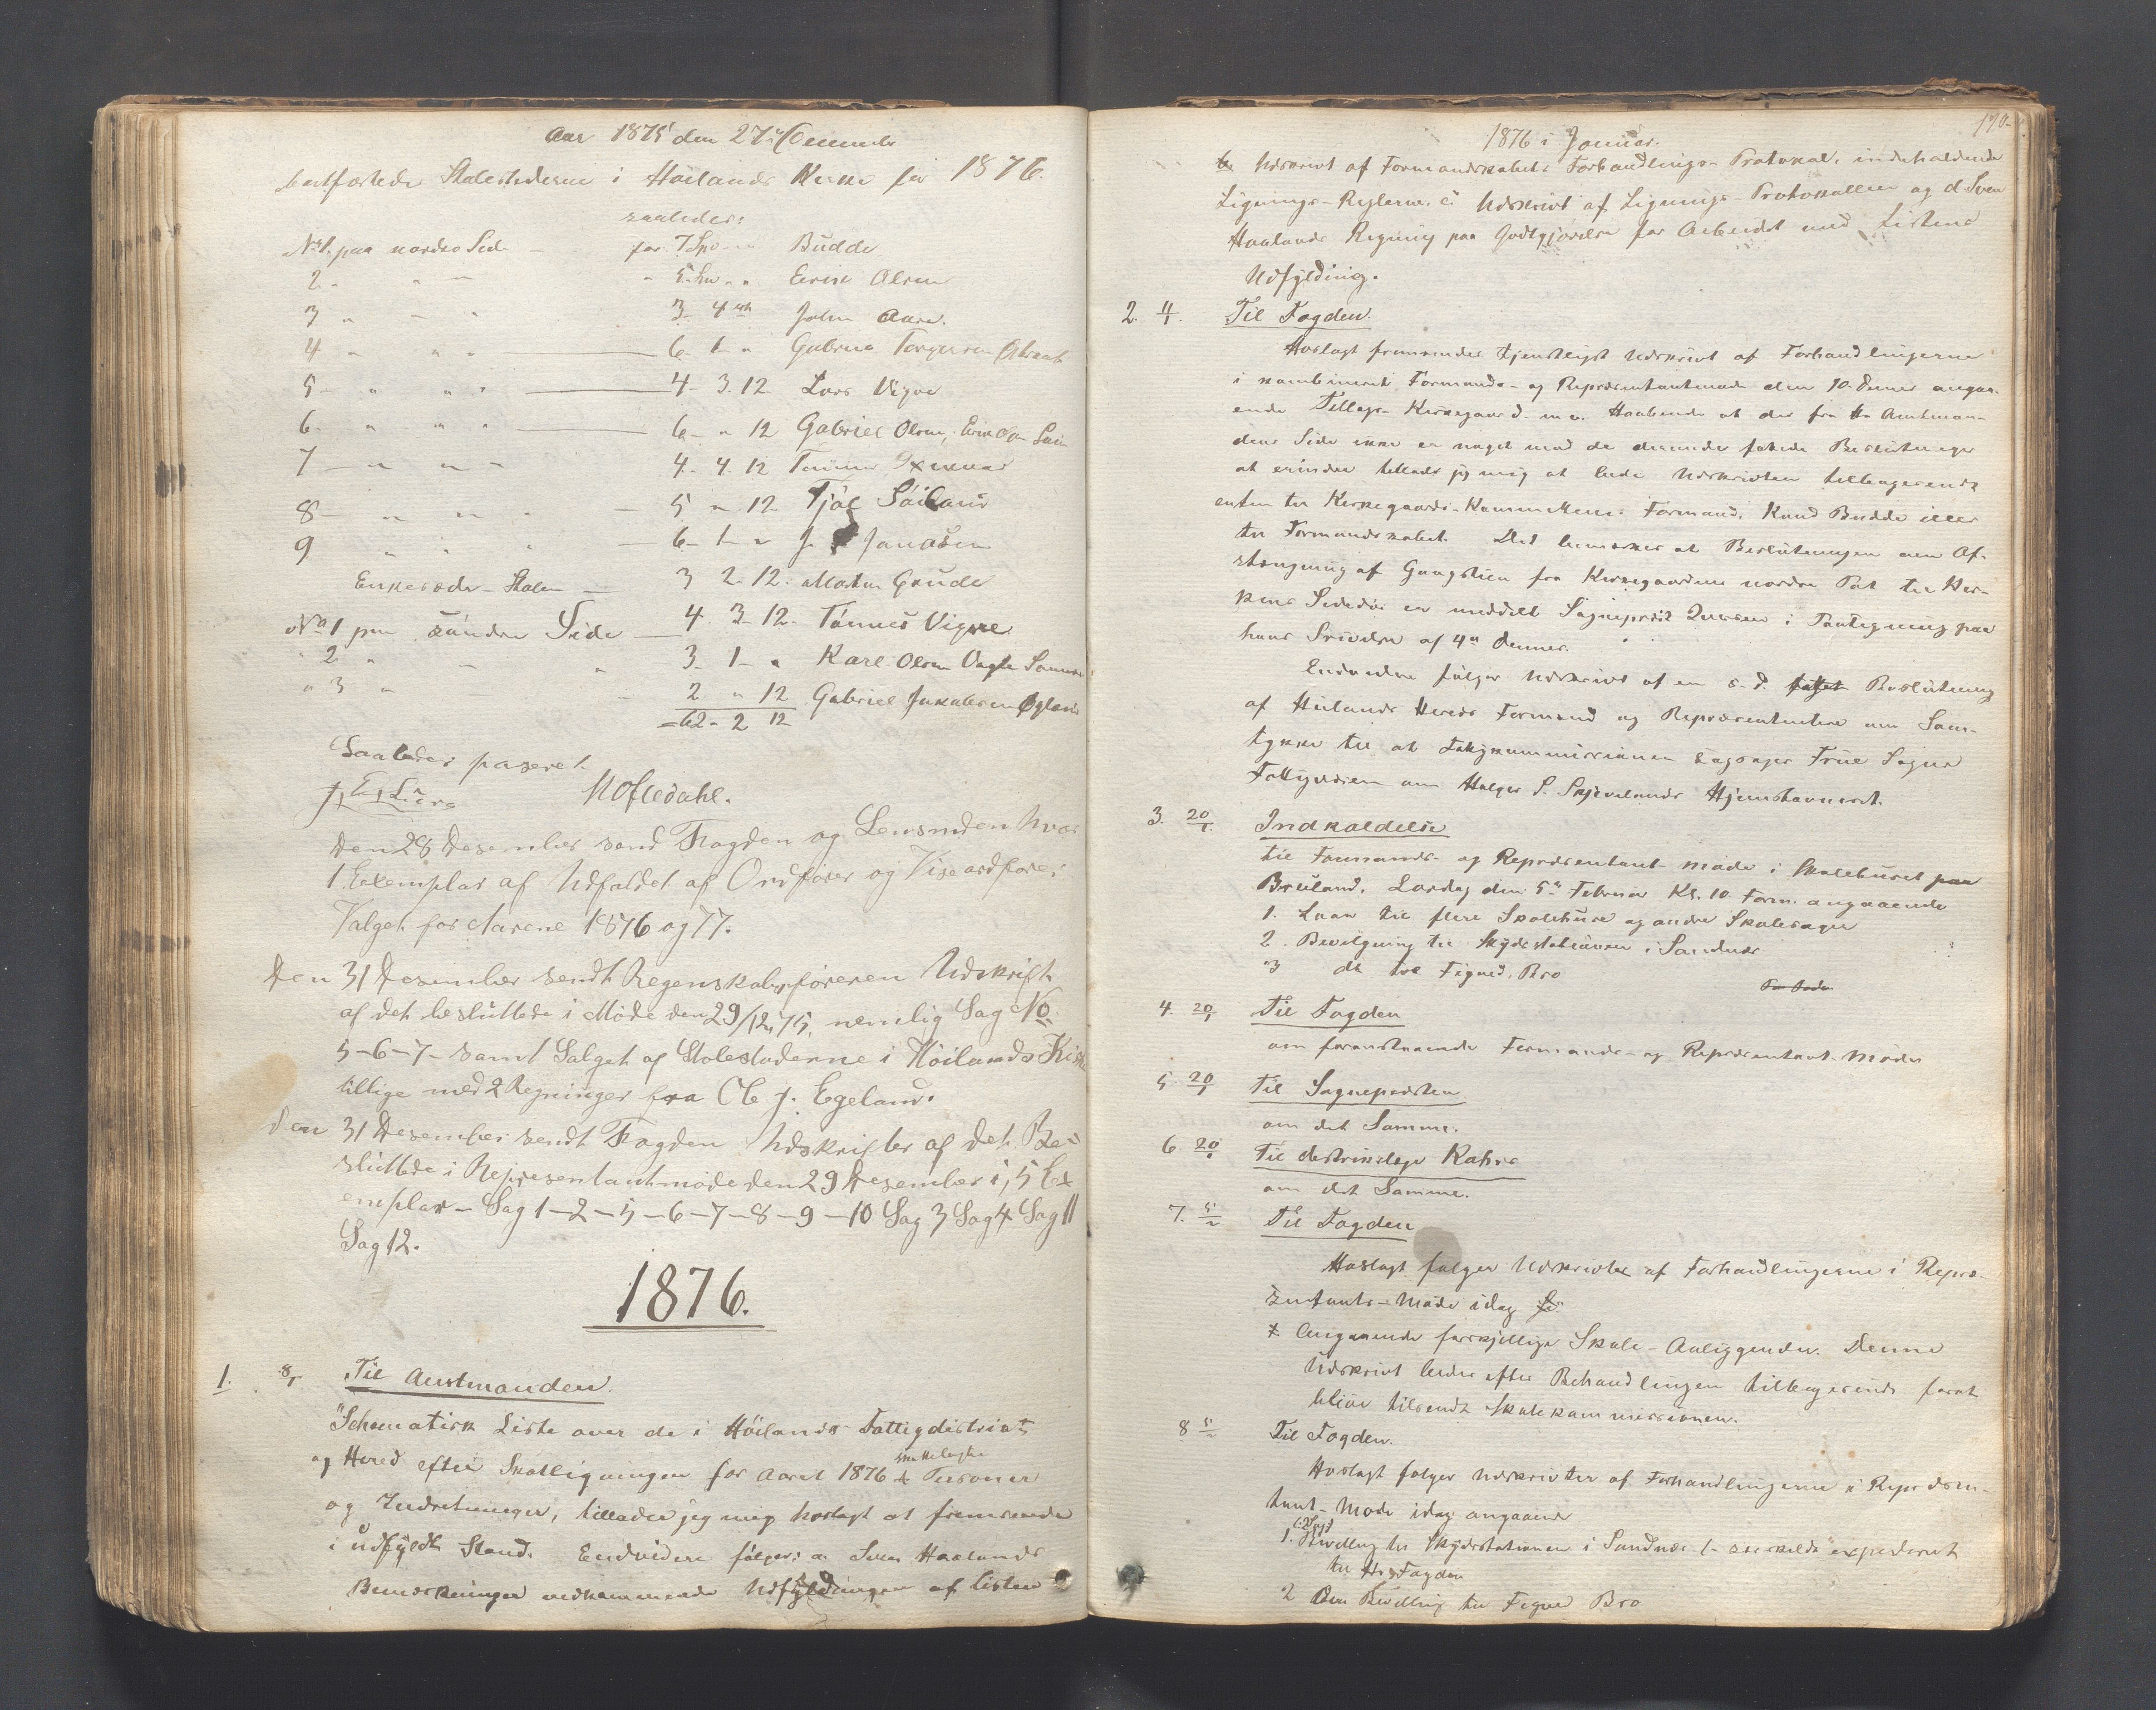 Aar 1875 den 27 December
bortfæstede Stolestederne i Höilands Kirke for 1876.
saaledes:
No 1. paa nordre Side — for 7 Spd - " Budde
2 " " — " 5. " " Erik Olsen
3 " — " 3 4 Aare.
4 " " " — 6. 1 " Gabriel Torgersen
5 — " " " — 4 - 3. 12 Lars Vigve
6 - " " " — 6 - " 12 Gabriel Olsen,
7 — " " " 4. 4. 12
8 — " " " — 5 " 12
9 " " " — 6 - 1 - " J. Jonasen
Enkesæde-Stolen — 3 2. 12. Morten Grude
No 1 paa söndre Side — 4. 3. 12. Tönnes Vigve
" 2 " — " 3 - 1 - " Karl Olsen
" 3 " — — 2 " 12 Gabriel Jakobsen
= 62 - 2 12
Saaledes paseret.
Hofledahl.
Den 28 Desember send Fogden og Lensmden hver
1 Exemplar af Udfaldet af Ordförer og Viseordförer
Valget for Aarene 1876 og 77.
Den 31 Desember sendt Regenskabsföreren Udskrift
af det besluttede i Möde den 29/12 75, nemlig Sag No
5-6-7- samt Salget af Stolestaderne i Höilands Kirke
tillige med 2 Regninger fra Ole J. Egeland.
Den 31 Desember sendt Fogden Udskrifter af det Be-
sluttede i Representantmöde den 29 Desember i, 5 Ex-
emplar - Sag 1-2-5-6-7-8-9-10 Sag 3 Sag 4 Sag 11
Sag 12.
1876.
1. 8/1 Til Amtmanden.
Schematisk Liste over de i Höilands Fattigdistrikt
og Hered efter Skatligningen for Aaret 1876 Personer
og Indretninger, tillader jeg mig hoslagt at fremsende
i udfyldt Stand. Endvidere fölger: a. Sven Haalands
Bemærkninger vedkommende Udfyldningen af Listen
190.
1876 i Januar.
b. Udskrivt af Formandskabets Forhandlings-Protokol, indeholdende
Lignings-Reglerne. c. Udskrivt af Lignings-Protokollen og d. Sven
Haalands Regning paa Godtgjörelse for Arbeidet med Listens
Udfylding.
2. 4/1. Til Fogden.
Hoslagt fremsendes tjenstligst Udskrivt af Forhandlingerne
i kombineret Formands- og Repræsentantmöde den 10. angaa-
ende Tillægs-Kirkegaard m. v. Haabende at der fra Hr Amtman-
dens Side ikke er noget mod de derunder fattede Beslutninger
at erindre tillader jeg mig at bede Udskrivten tilbagesendt
enten til Kirkegaards-Kommiteens Formand, Knud Budde eller
til Formandskabet. Det bemærkes at Beslutningen om Af-
stængning af Gangstien fra Kirkegaardens nordre Port til Kir-
kens Sidedör er meddelt Sognepræst i Paategning paa
hans Skrivelse af 4de
Endvidere fölger Udskrivt af en s. d. fattet Beslutning
af Höilands Hereds Formænd og Repræsentanter om Sam-
tykke til at Fattigkommissionen sagsöger Sogns
Fattigvæsen om Holger S. Skjevelands Hjemstavnsret.
3. 20/1. Indkaldelse
til Formands- og Repræsentant-möde i Skolehuset paa
Breiland, Lördag den 5te Februar Kl. 10 Form. angaaende
1. Laan til flere Skolehuse og andre Skolesager
2. Bevilgning til Skydsstationen i Sandnæs
3 do til Figved Bro
4. 20/1 Til Fogden
om foranstaaende Formands- og Repræsentant-Möder
5 20/1 Til Sognepræsten
om det Samme.
6 20/1 Til distriktslæge Kahrs
om det Samme.
7. 5/2 Til Fogden
Hoslagt fölger Udskrivter af Forhandlingerne i Repræ-
sentants-Möde idag
Angaaende forskjellige Skole-Anliggender. Denne
Udskrivt bedes efter Behandlingen tilbagesendt forat
blive tilsendt Skolekommissionen.
8 5/2 Til Fogden.
Hoslagt fölger Udskrivter af Forhandlingerne i Repræsen-
tant-Möde idag angaaende
1. Bevilling til Skydsstationen i Sandnæs (- særskildt expederet
til Hr Fogden
2 Om Bevilling til Figved Bro